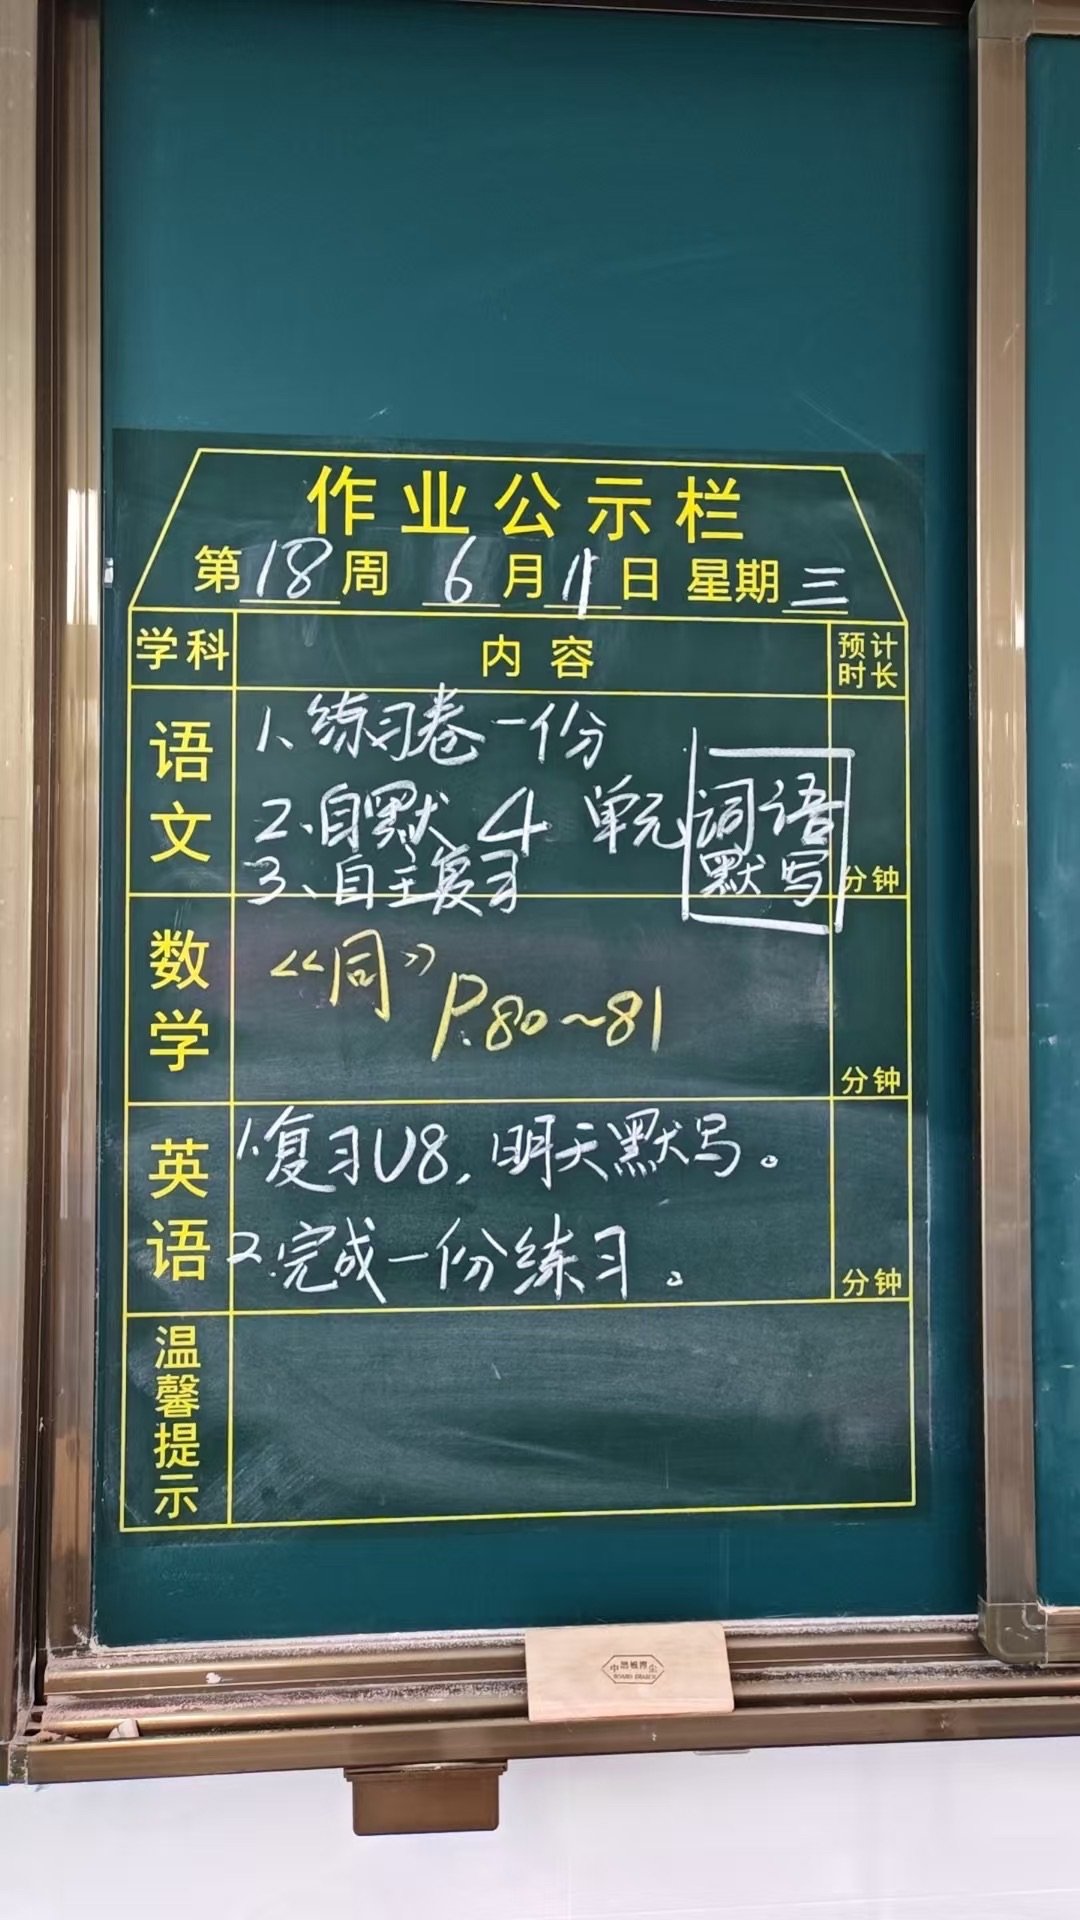 作业公示栏
第18周 6月11日 星期三
学科 内容 预计时长
语文
1、练习卷一份
2、自默 4 单元 词语
默写
3、自主复习
分钟
数学
《同》 P.80~81
分钟
英语
1.复习U8，明天默写。
2.完成一份练习。
分钟
温馨提示